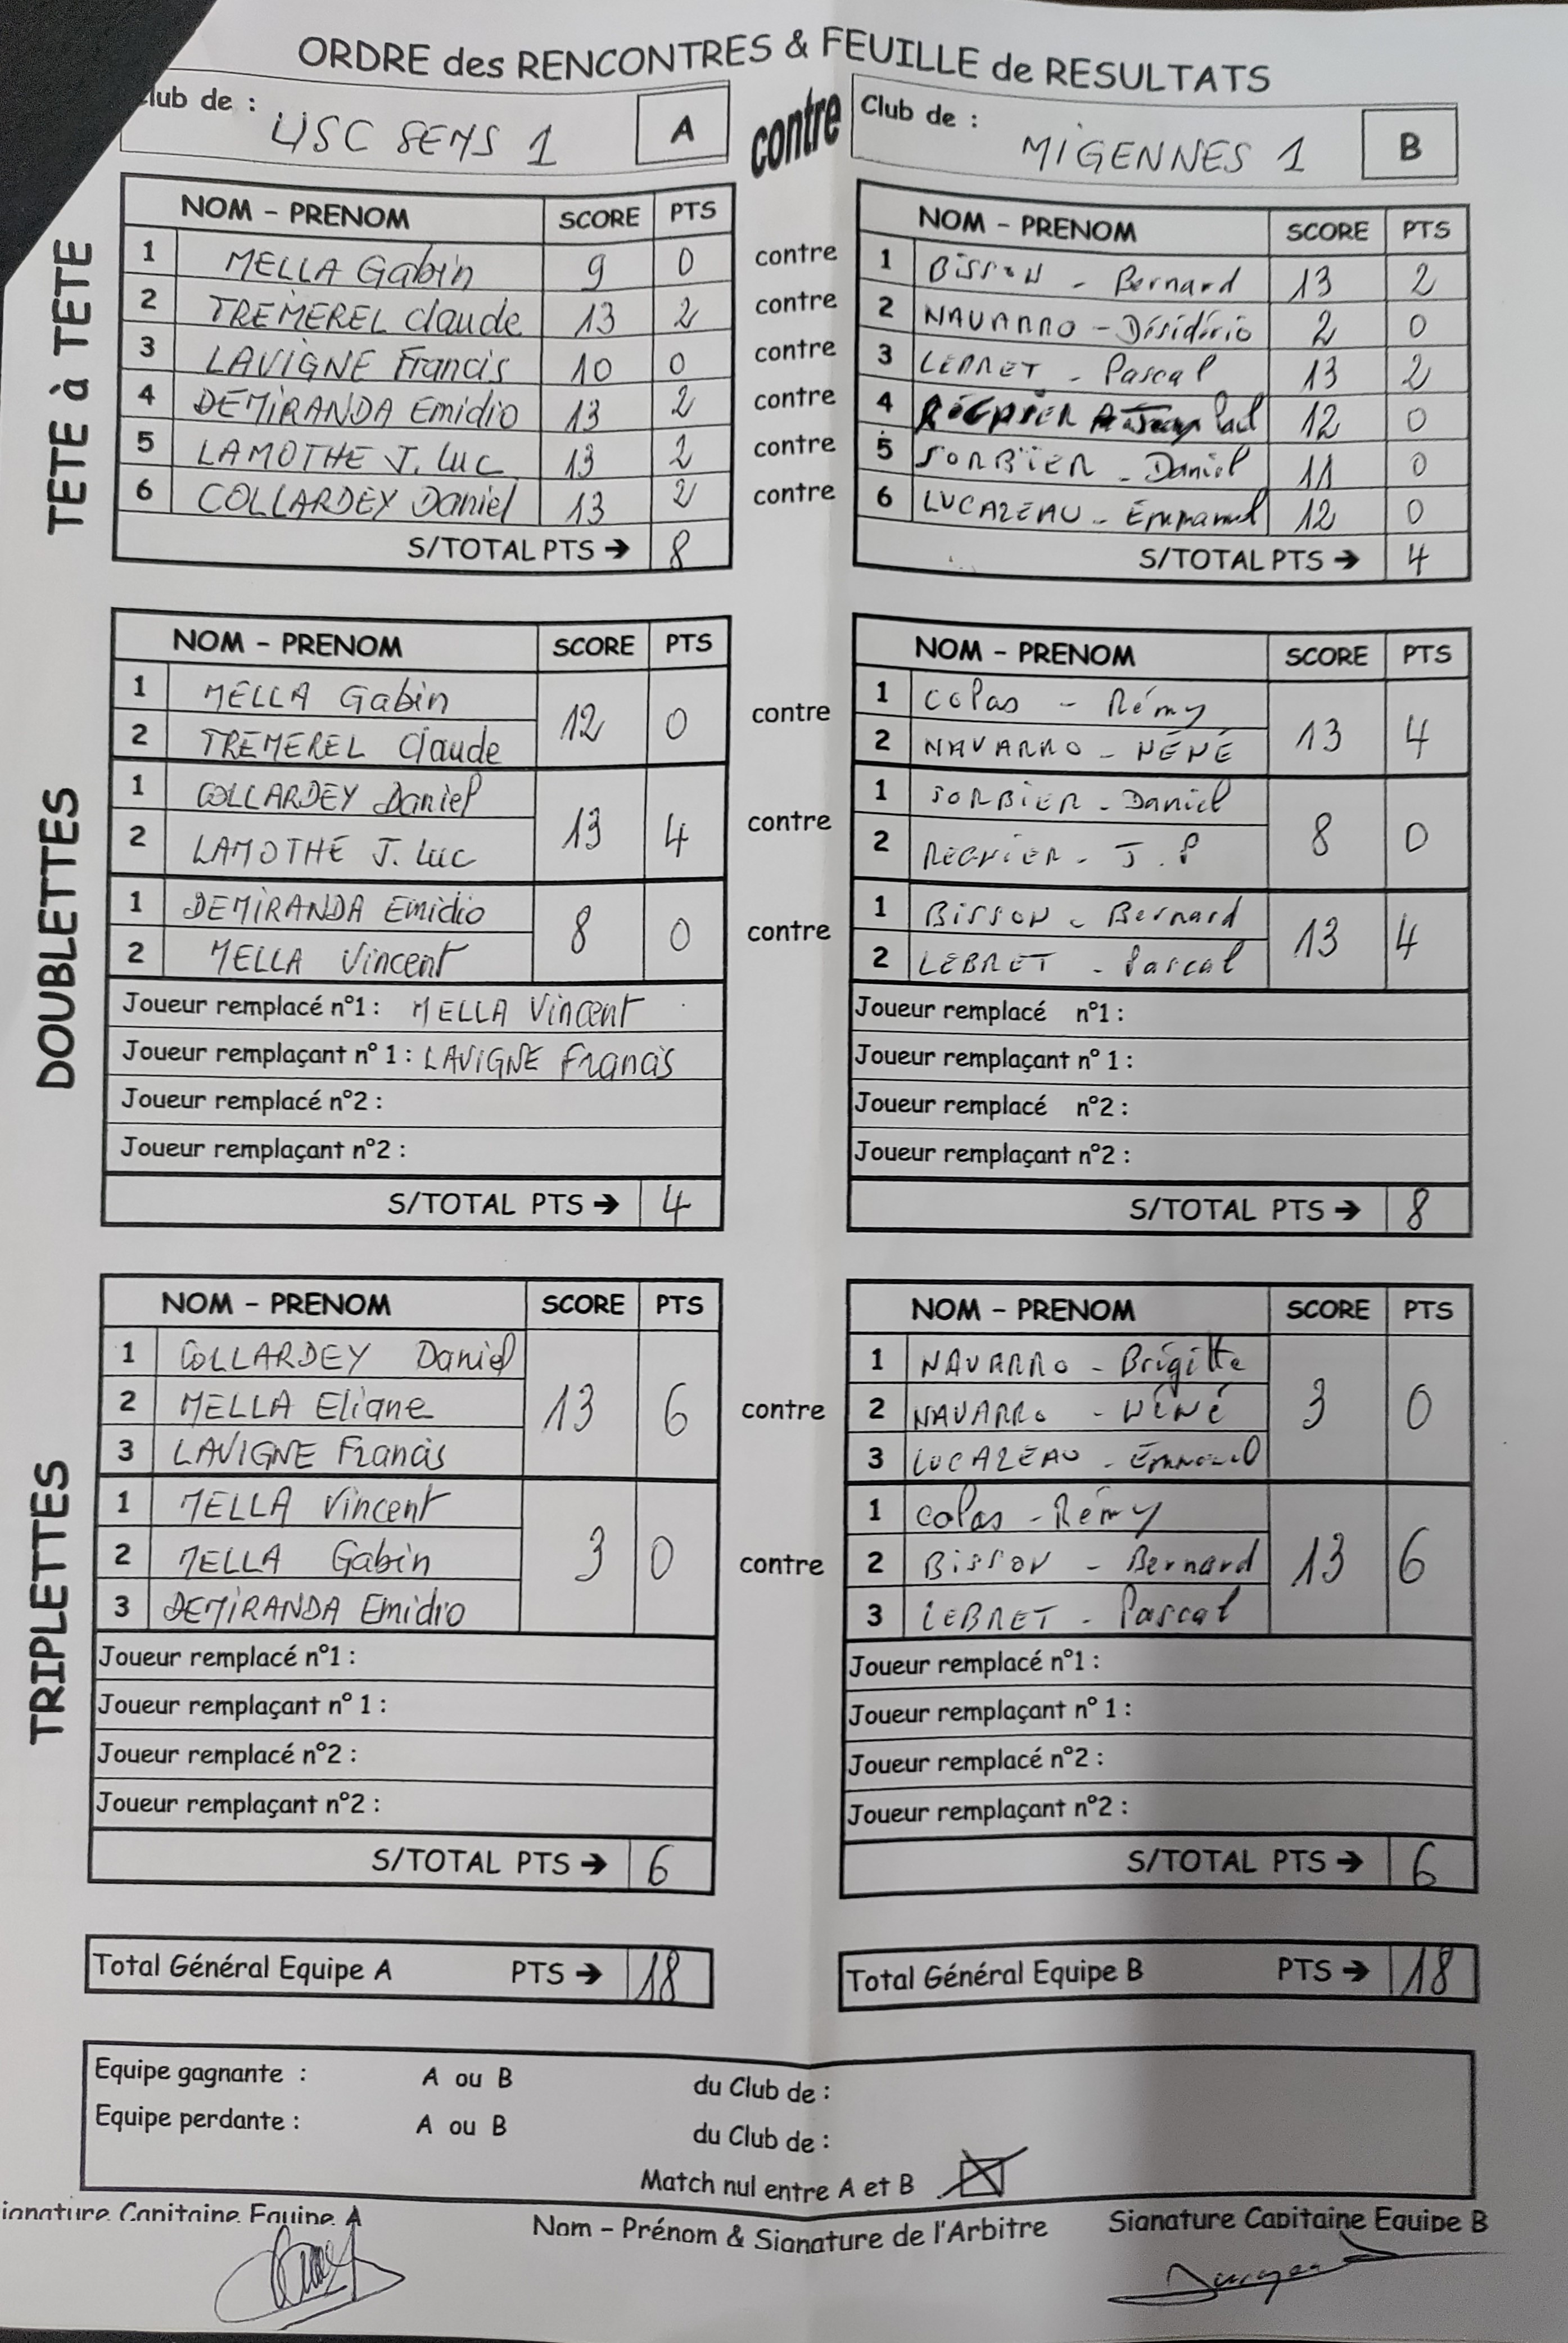 ORDRE des RENCONTRES & FEUILLE de RESULTATS
Club de : USC SENS 1 A contre Club de : MIGENNES 1 B
TETE à TETE
NOM - PRENOM SCORE PTS NOM - PRENOM SCORE PTS
1 MELLA Gabin 9 0 contre 1 BISSON - Bernard 13 2
2 TREMEREL Claude 13 2 contre 2 NAVARRO - Désidério 2 0
3 LAVIGNE Francis 10 0 contre 3 LEBRET - Pascal 13 2
4 DEMIRANDA Emidio 13 2 contre 4 REGNIER 12 0
5 LAMOTHE J. Luc 13 2 contre 5 SORBIER - Daniel 11 0
6 COLLARDEY Daniel 13 2 contre 6 LUCAZEAU - Emmanuel 12 0
S/TOTAL PTS → 8 S/TOTAL PTS → 4
DOUBLETTES
NOM - PRENOM SCORE PTS NOM - PRENOM SCORE PTS
1 MELLA Gabin 12 0 contre 1 Colas - Rémy 13 4
2 TREMEREL Claude 2 NAVARRO - NÉNÉ
1 COLLARDEY Daniel 13 4 contre 1 SORBIER - Daniel 8 0
2 LAMOTHE J. Luc 2 REGNIER - J.P
1 DEMIRANDA Emidio 8 0 contre 1 BISSON - Bernard 13 4
2 MELLA Vincent 2 LEBRET - Pascal
Joueur remplacé n°1 : MELLA Vincent Joueur remplacé n°1 :
Joueur remplaçant n° 1 : LAVIGNE Francis Joueur remplaçant n° 1 :
Joueur remplacé n°2 : Joueur remplacé n°2 :
Joueur remplaçant n°2 : Joueur remplaçant n°2 :
S/TOTAL PTS → 4 S/TOTAL PTS → 8
TRIPLETTES
NOM - PRENOM SCORE PTS NOM - PRENOM SCORE PTS
1 COLLARDEY Daniel 13 6 contre 1 NAVARRO - Brigitte 3 0
2 MELLA Eliane 2 NAVARRO - NÉNÉ
3 LAVIGNE Francis 3 LUCAZEAU - Emmanuel
1 MELLA Vincent 3 0 contre 1 Colas - Rémy 13 6
2 MELLA Gabin 2 BISSON - Bernard
3 DEMIRANDA Emidio 3 LEBRET - Pascal
Joueur remplacé n°1 : Joueur remplacé n°1 :
Joueur remplaçant n° 1 : Joueur remplaçant n° 1 :
Joueur remplacé n°2 : Joueur remplacé n°2 :
Joueur remplaçant n°2 : Joueur remplaçant n°2 :
S/TOTAL PTS → 6 S/TOTAL PTS → 6
Total Général Equipe A PTS → 18 Total Général Equipe B PTS → 18
Equipe gagnante : A ou B du Club de :
Equipe perdante : A ou B du Club de :
Match nul entre A et B
Signature Capitaine Equipe A Nom - Prénom & Signature de l'Arbitre Signature Capitaine Equipe B